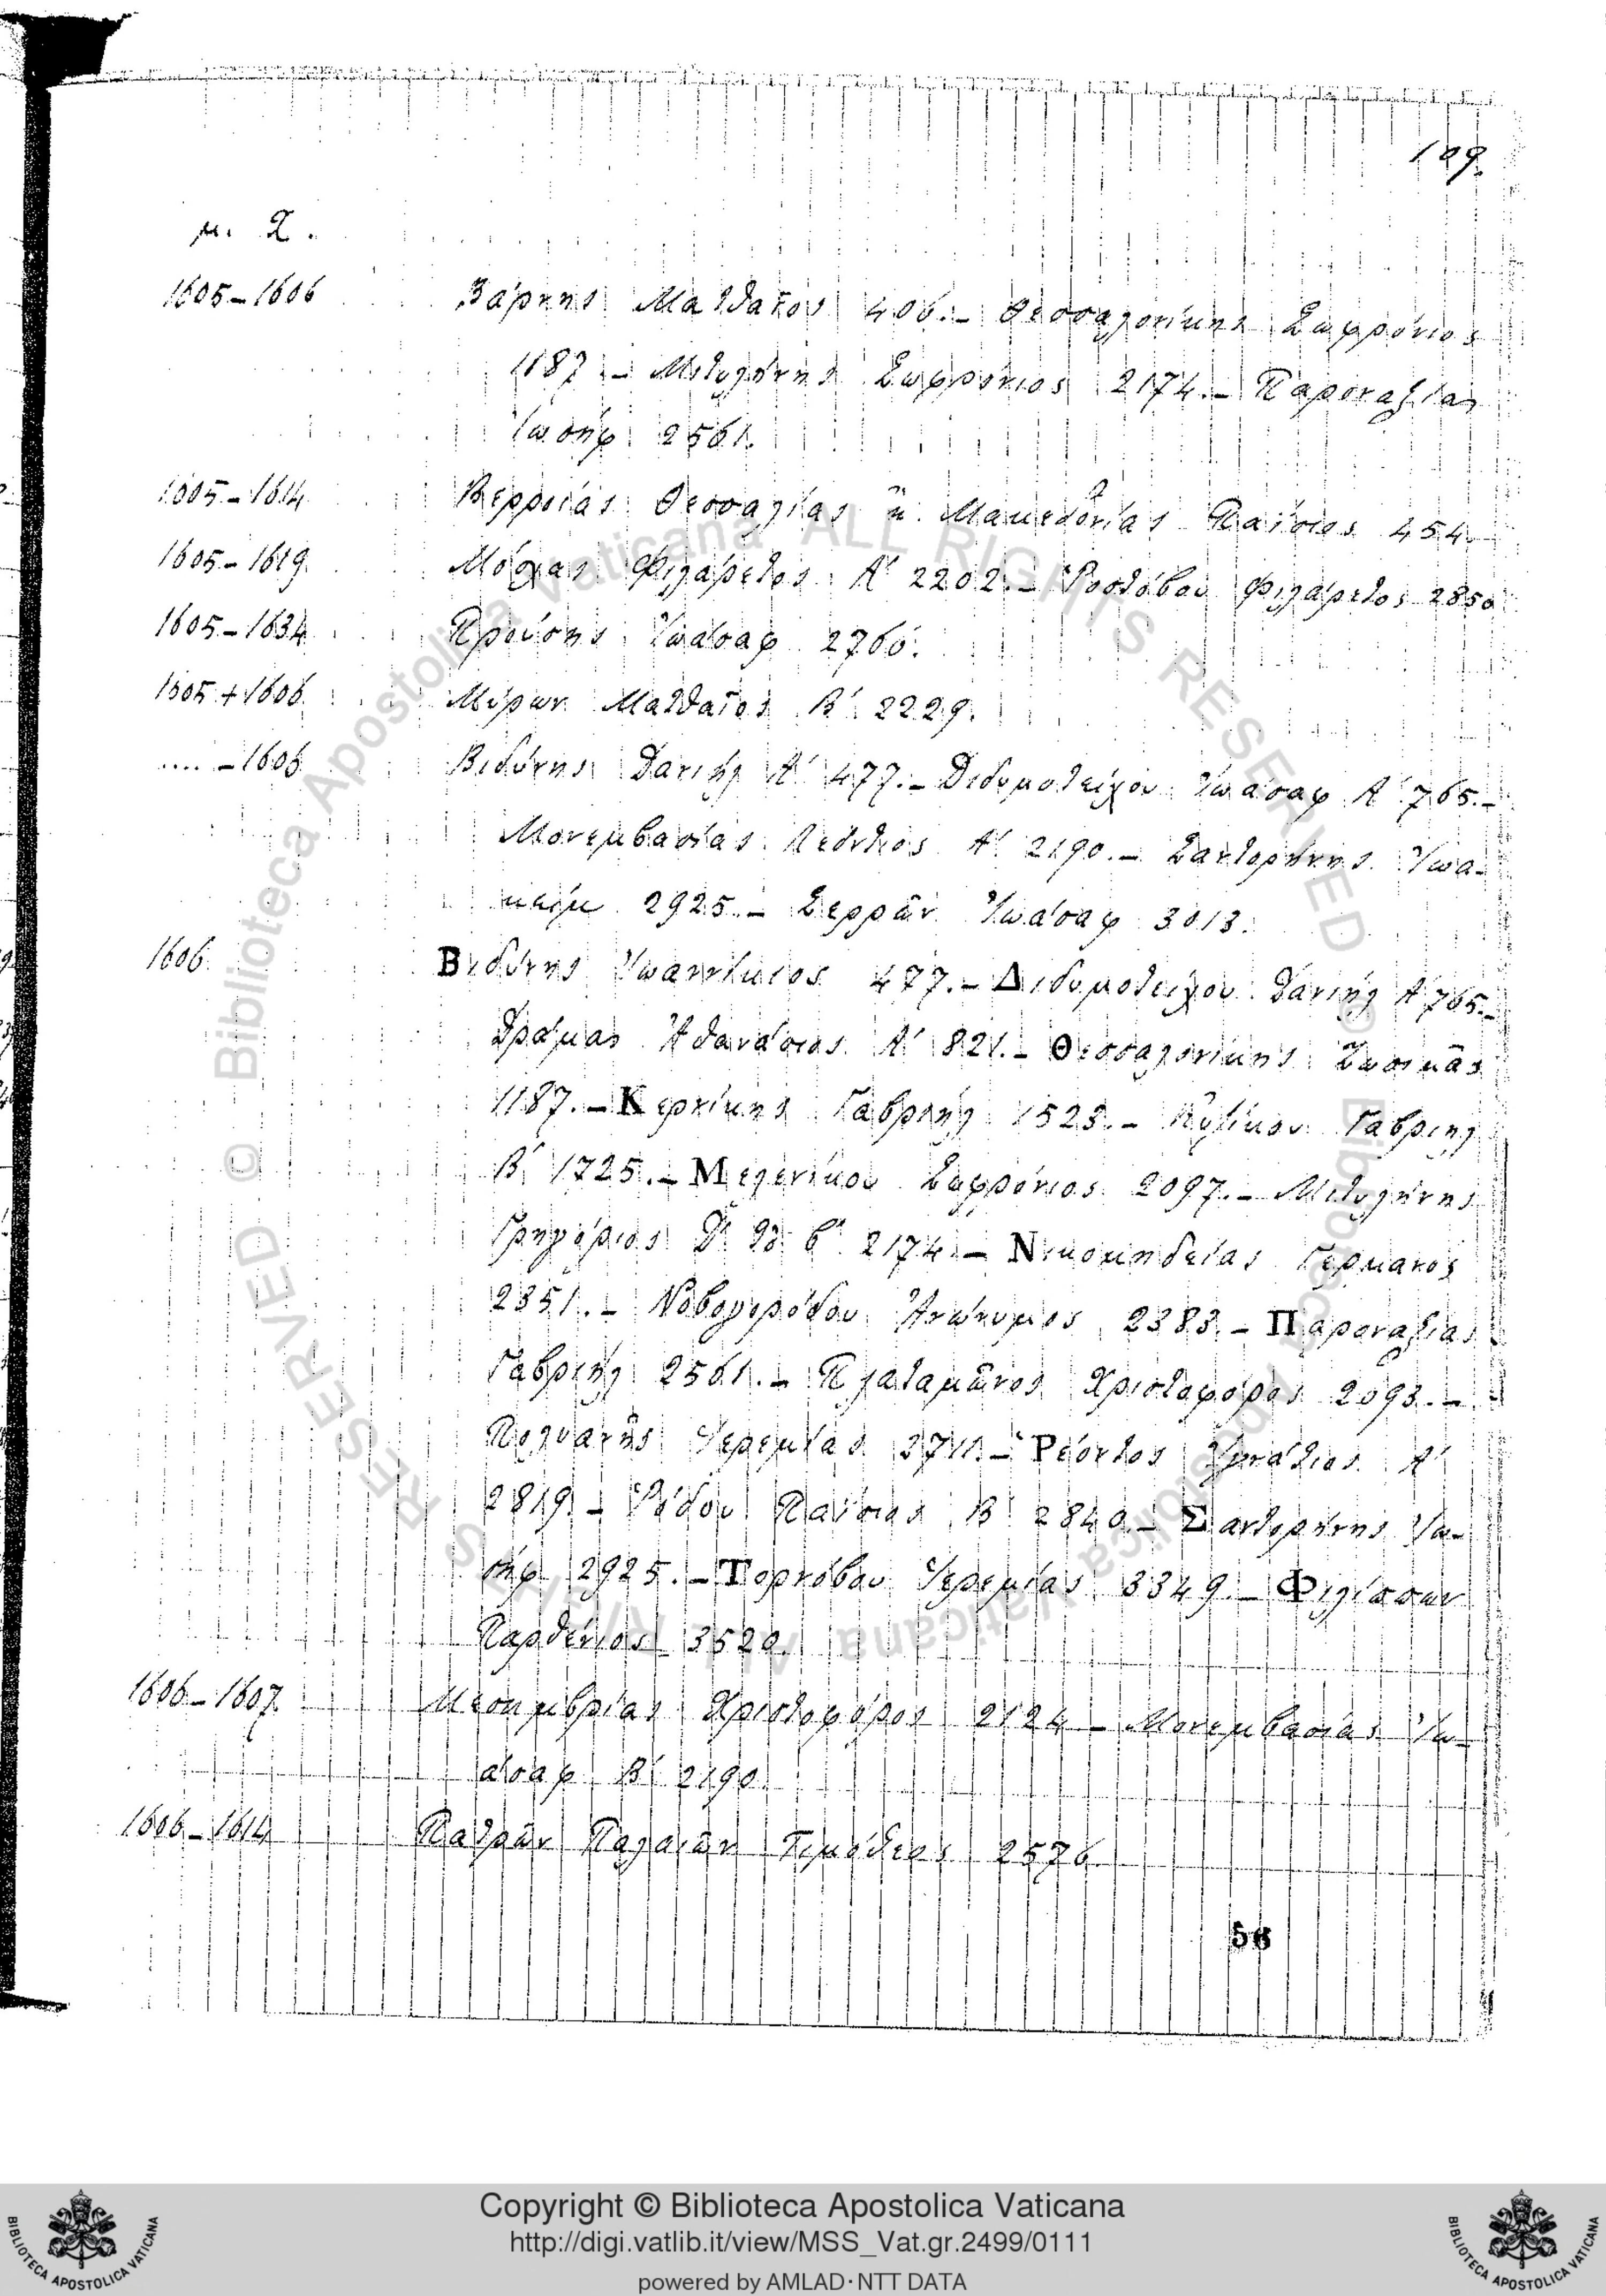 109.
μ. Χ.
1605-1606 Βάρνης Ματθαῖος 406.- Θεσσαλονίκης Σωφρόνιος
1187.- Μιτυλήνης Σωφρόνιος 2174.- Παροναξίας
Ἰωσήφ 2561.
1605-1614 Βερροίας Θεσσαλίας κ. Μακεδονίας Παΐσιος 454.-
1605-1619 Μόσχας Φιλάρετος Α' 2202.- Ῥοστόβου Φιλάρετος 2850
1605-1634 Προύσης Ἰωάσαφ 2766.
1605+1606 Μύρων Ματθαῖος Β' 2229.
.... -1606 Βιδύνης Δανιήλ Α' 477.- Διδυμοτείχου Ἰωάσαφ Α' 765.-
Μονεμβασίας Λεόντιος Α' 2190.- Σαντορήνης Ἰωα-
κείμ 2925.- Σερρῶν Ἰωάσαφ 3013.
1606 Βιδύνης Ἰωαννίκιος 477.- Διδυμοτείχου Δανιήλ Α' 765.-
Δράμας Ἀθανάσιος Α' 821.- Θεσσαλονίκης Ζωσιμᾶς
1187.- Κερνίκης Γαβριήλ 1523.- Κυζίκου Γαβριήλ
Β' 1725.- Μελενίκου Σωφρόνιος 2097.- Μιτυλήνης
Γρηγόριος Δ' 2174.- Νικομηδείας Γερμανός
2351.- Νοβογορόδου Ἀνώνυμος 2383.- Παροναξίας
Γαβριήλ 2561.- Πλαταμῶνος Χριστοφόρος 2693.-
Πολυανῆς Ἱερεμίας 2711.- Ῥέοντος Ἰγνάτιος Α'
2819.- Ῥόδου Παΐσιος Β' 2840.- Σαντορήνης Ἰω-
σήφ 2925.- Τορνόβου Ἱερεμίας 3349.- Φιλίππων
Παρθένιος 3520.
1606-1607 Μεσημβρίας Χριστοφόρος 2124.- Μονεμβασίας Ἰω-
άσαφ Β' 2190.
1606-1614 Πατρῶν Παλαιῶν Τιμόθεος 2576.
56
Copyright © Biblioteca Apostolica Vaticana
http://digi.vatlib.it/view/MSS_Vat.gr.2499/0111
powered by AMLAD·NTT DATA
BIBLIOTECA APOSTOLICA VATICANA
BIBLIOTECA APOSTOLICA VATICANA